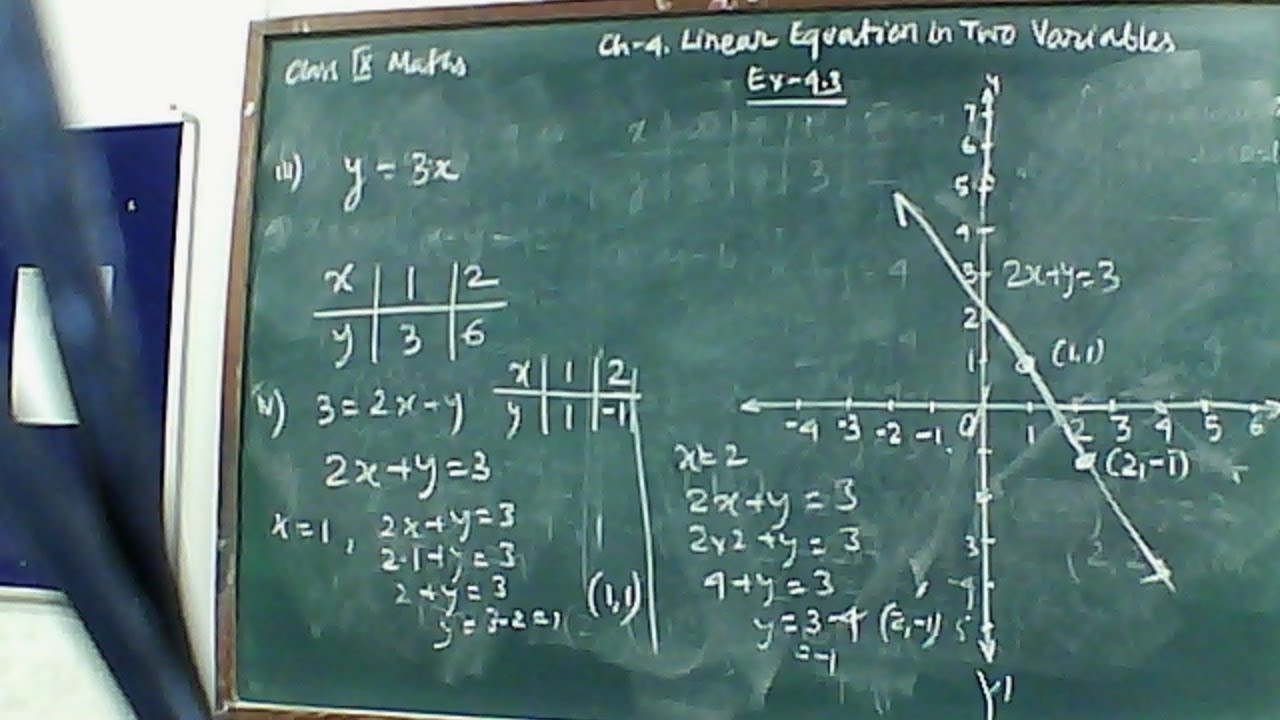 Class IX Maths
Ch-4. Linear Equation in Two Variables
Ex-4.3
iii) y = 3x
x | 1 | 2
y | 3 | 6
iv) 3 = 2x+y
x | 1 | 2
y | 1 | -1
2x+y=3
x=1, 2x+y=3
2·1+y=3
2+y=3
y=3-2=1
(1,1)
x=2
2x+y=3
2x2+y=3
4+y=3
y=3-4 (2,-1)
=-1
y
7
6
5
4
3
2x+y=3
2
1
(1,1)
-4 -3 -2 -1 0 1 2 3 4 5 6
(2,-1)
3
4
5
Y1